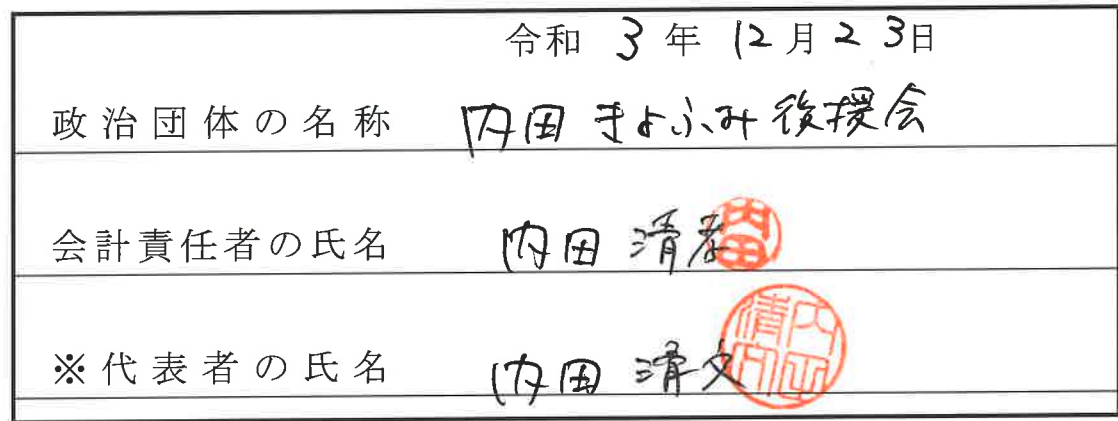 令和 3 年 12 月 2 3日
政治団体の名称 内田きよふみ後援会
会計責任者の氏名 内田 清孝 内田
※代表者の氏名 内田 清文